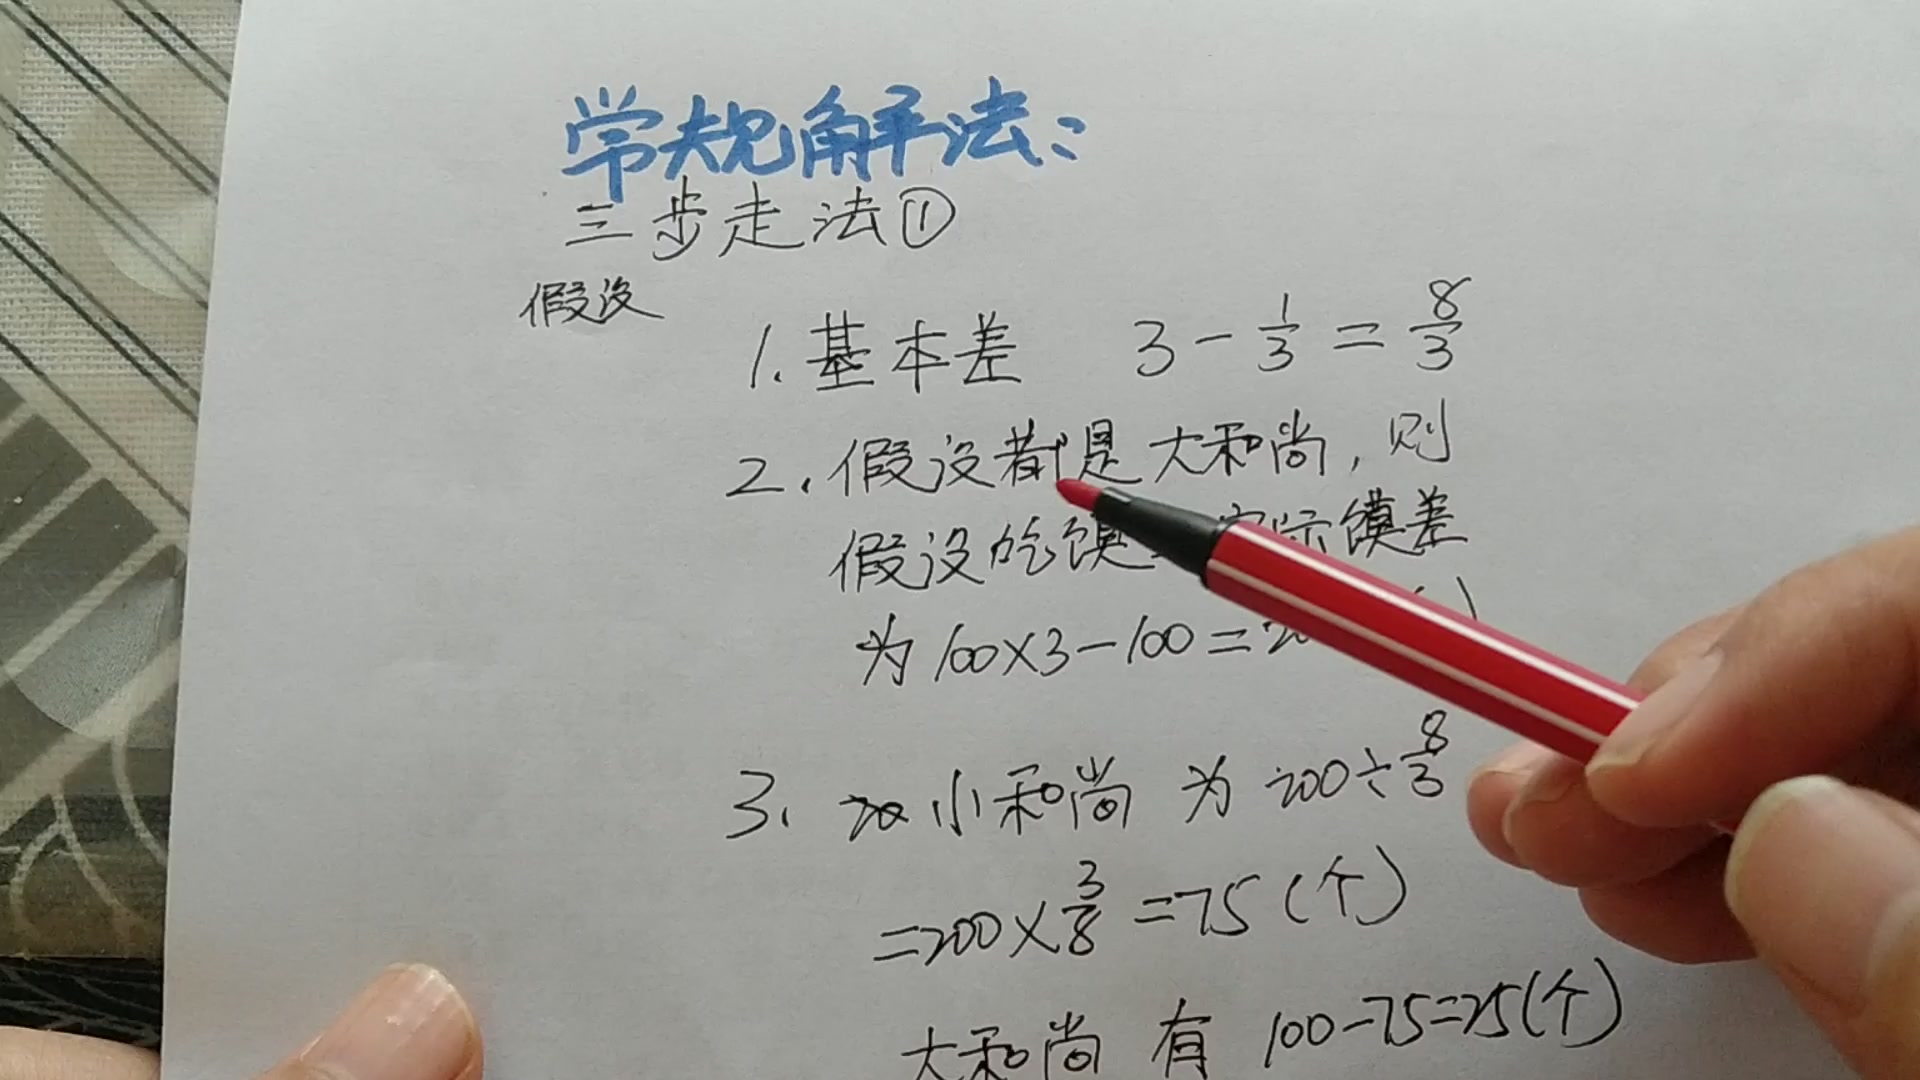 常规解法:
三步走法①
假设
1. 基本差 3-1/3=8/3
2. 假设都是大和尚, 则
假设吃馍 实际馍差
为100×3-100=20
3. 小和尚 为 200÷8/3
=200×3/8=75(个)
大和尚 有 100-75=25(个)